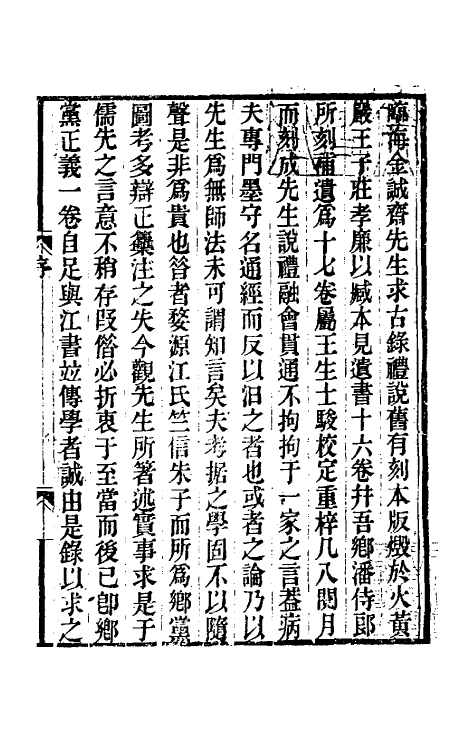 臨海金誠齋先生求古錄禮說舊有刻本版燬於火黃
巖王子莊孝廉以臧本見遺書十六卷幷吾鄉潘侍郎
所刻補遺爲十七卷屬王生士駿校定重梓凡八閱月
而刻成先生說禮融會貫通不拘拘于一家之言葢病
夫專門墨守名通經而反以汨之者也或者之論乃以
先生爲無師法未可謂知言矣夫考据之學固不以隨
聲是非爲貴也昝者婺源江氏竺信朱子而所爲鄉黨
圖考多辯正集注之失今觀先生所著述實事求是于
儒先之言意不稍存叚偺必折衷于至當而後已卽鄉
黨正義一卷自足與江書竝傳學者誠由是錄以求之
序